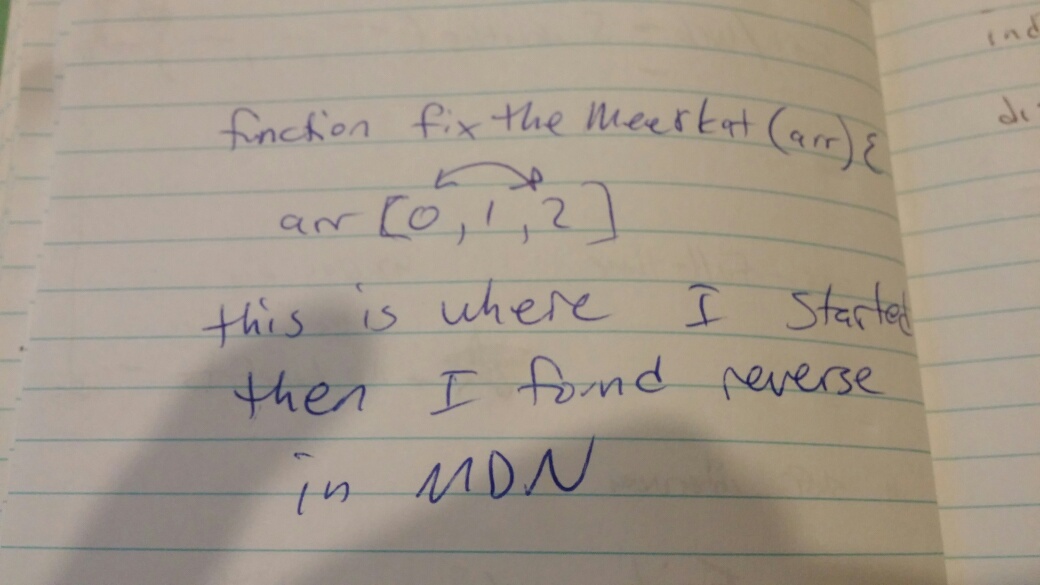 function fixtheMeerkat(arr){
arr [0, 1, 2]
this is where I started
then I found reverse
in MDN
ind
di